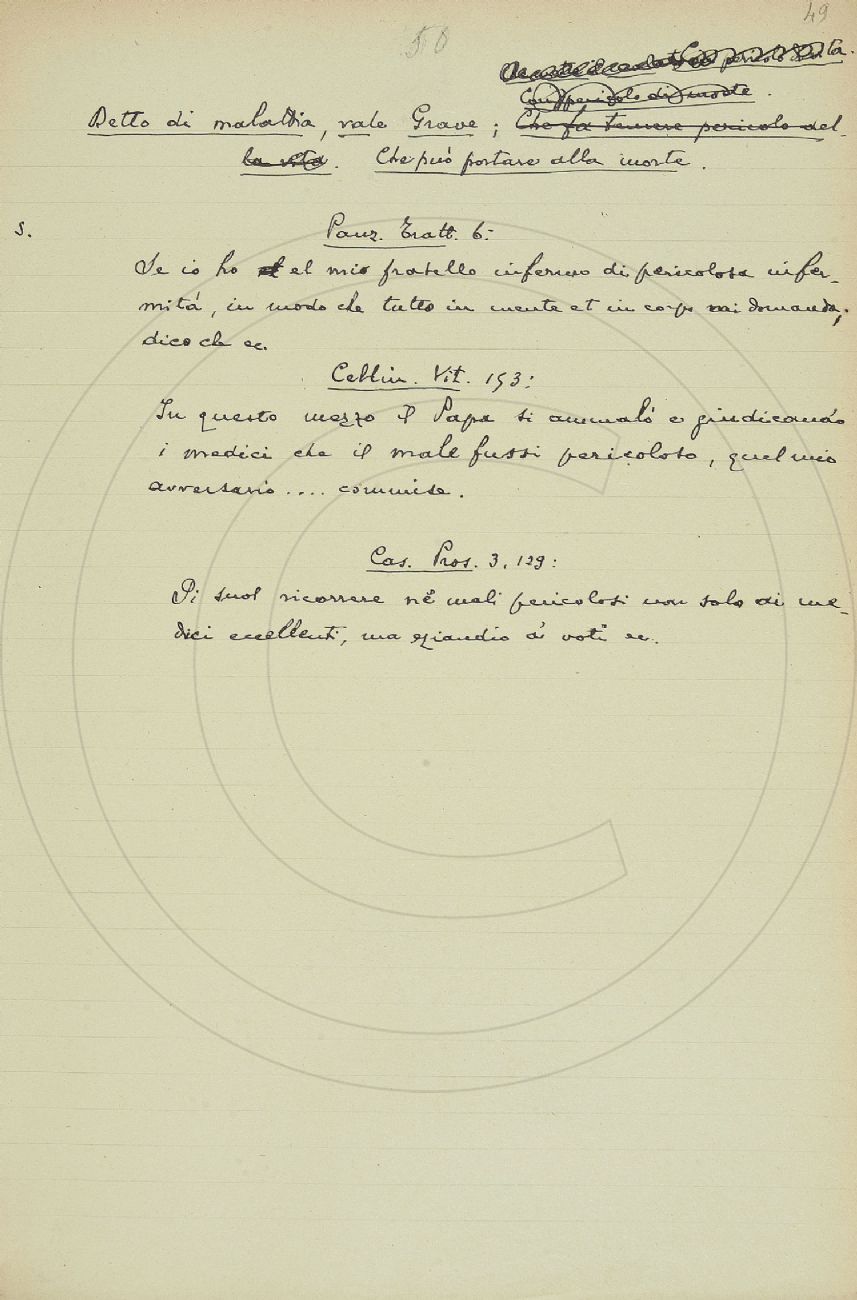 49
50
pericolo
Con pericolo di morte.
Detto di malattia, vale Grave; Che fa temere pericolo del-
la vita. Che può portare alla morte.
S.
Panz. Tratt. 6:
Se io ho el mio fratello infermo di pericolosa infer-
mità, in modo che tutto in mente et in corpo mi domanda,
dico che ec.
Cellin. Vit. 153:
In questo mezzo il Papa si ammalò e giudicando
i medici che il male fussi pericoloso, quel mio
avversario .... commise.
Cas. Pros. 3, 129:
Si suol ricorrere nè mali pericolosi non solo ai me-
dici eccellenti, ma eziandio a' voti ec.